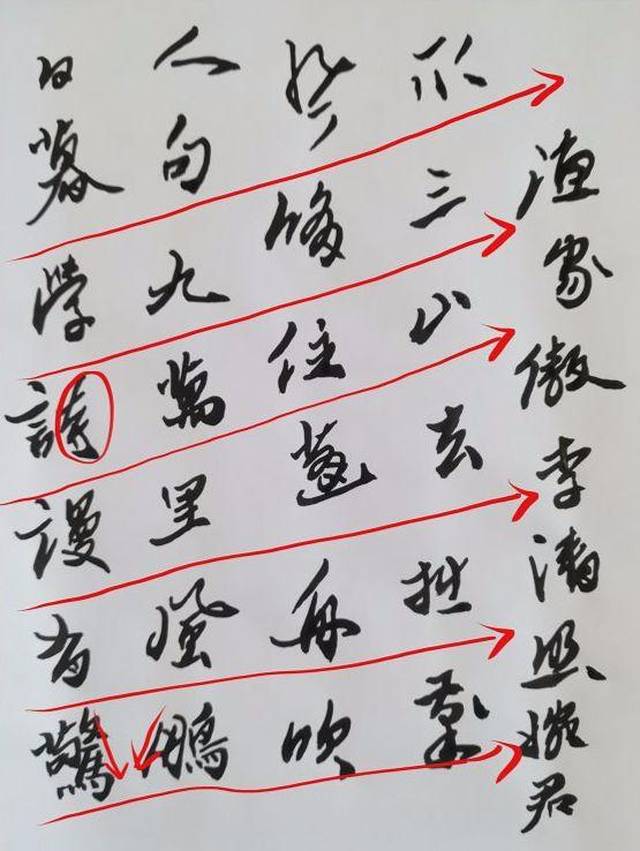 日暮學詩謾有驚
人句九萬里風鵬
住蓬舟吹
三山去拙
漁家傲李清照婉君